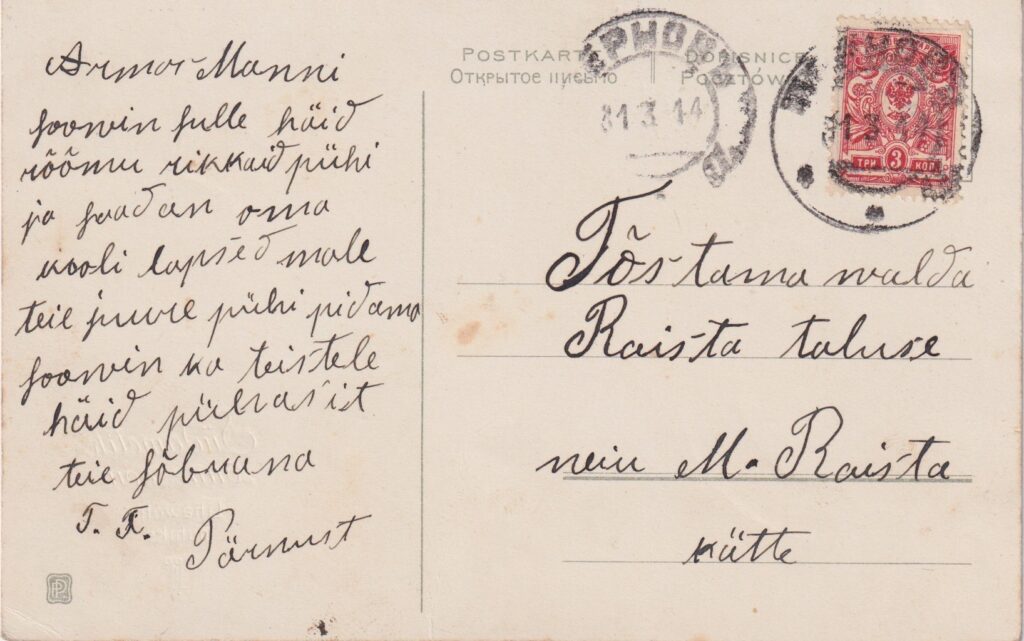 Armas Manni
soowin sulle häid
rõõmu rikkaid pühi
ja saadan oma
kooli lapsed malle
teie juure pühi pidama
soowin ka teistele
häid pühasit
teie sõbrana
T. K.
Pärnust
POSTKARTE DOPISNICE
Открытое письмо
31 3 14
31 3 1
ТРИ 3 КОП
Tõstama walda
Raista taluse
neiu M. Raista
kätte